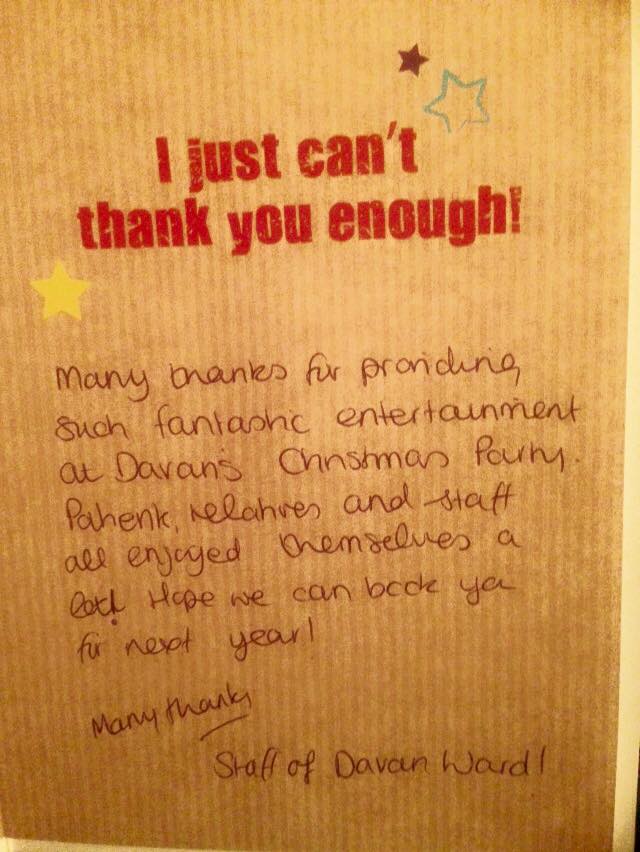 I just can't
thank you enough!
Many thanks for providing
such fantastic entertainment
at Davan's Christmas Party.
Patients, relatives and staff
all enjoyed themselves a
lot! Hope we can book you
for next year!
Many thanks
Staff of Davan Ward!